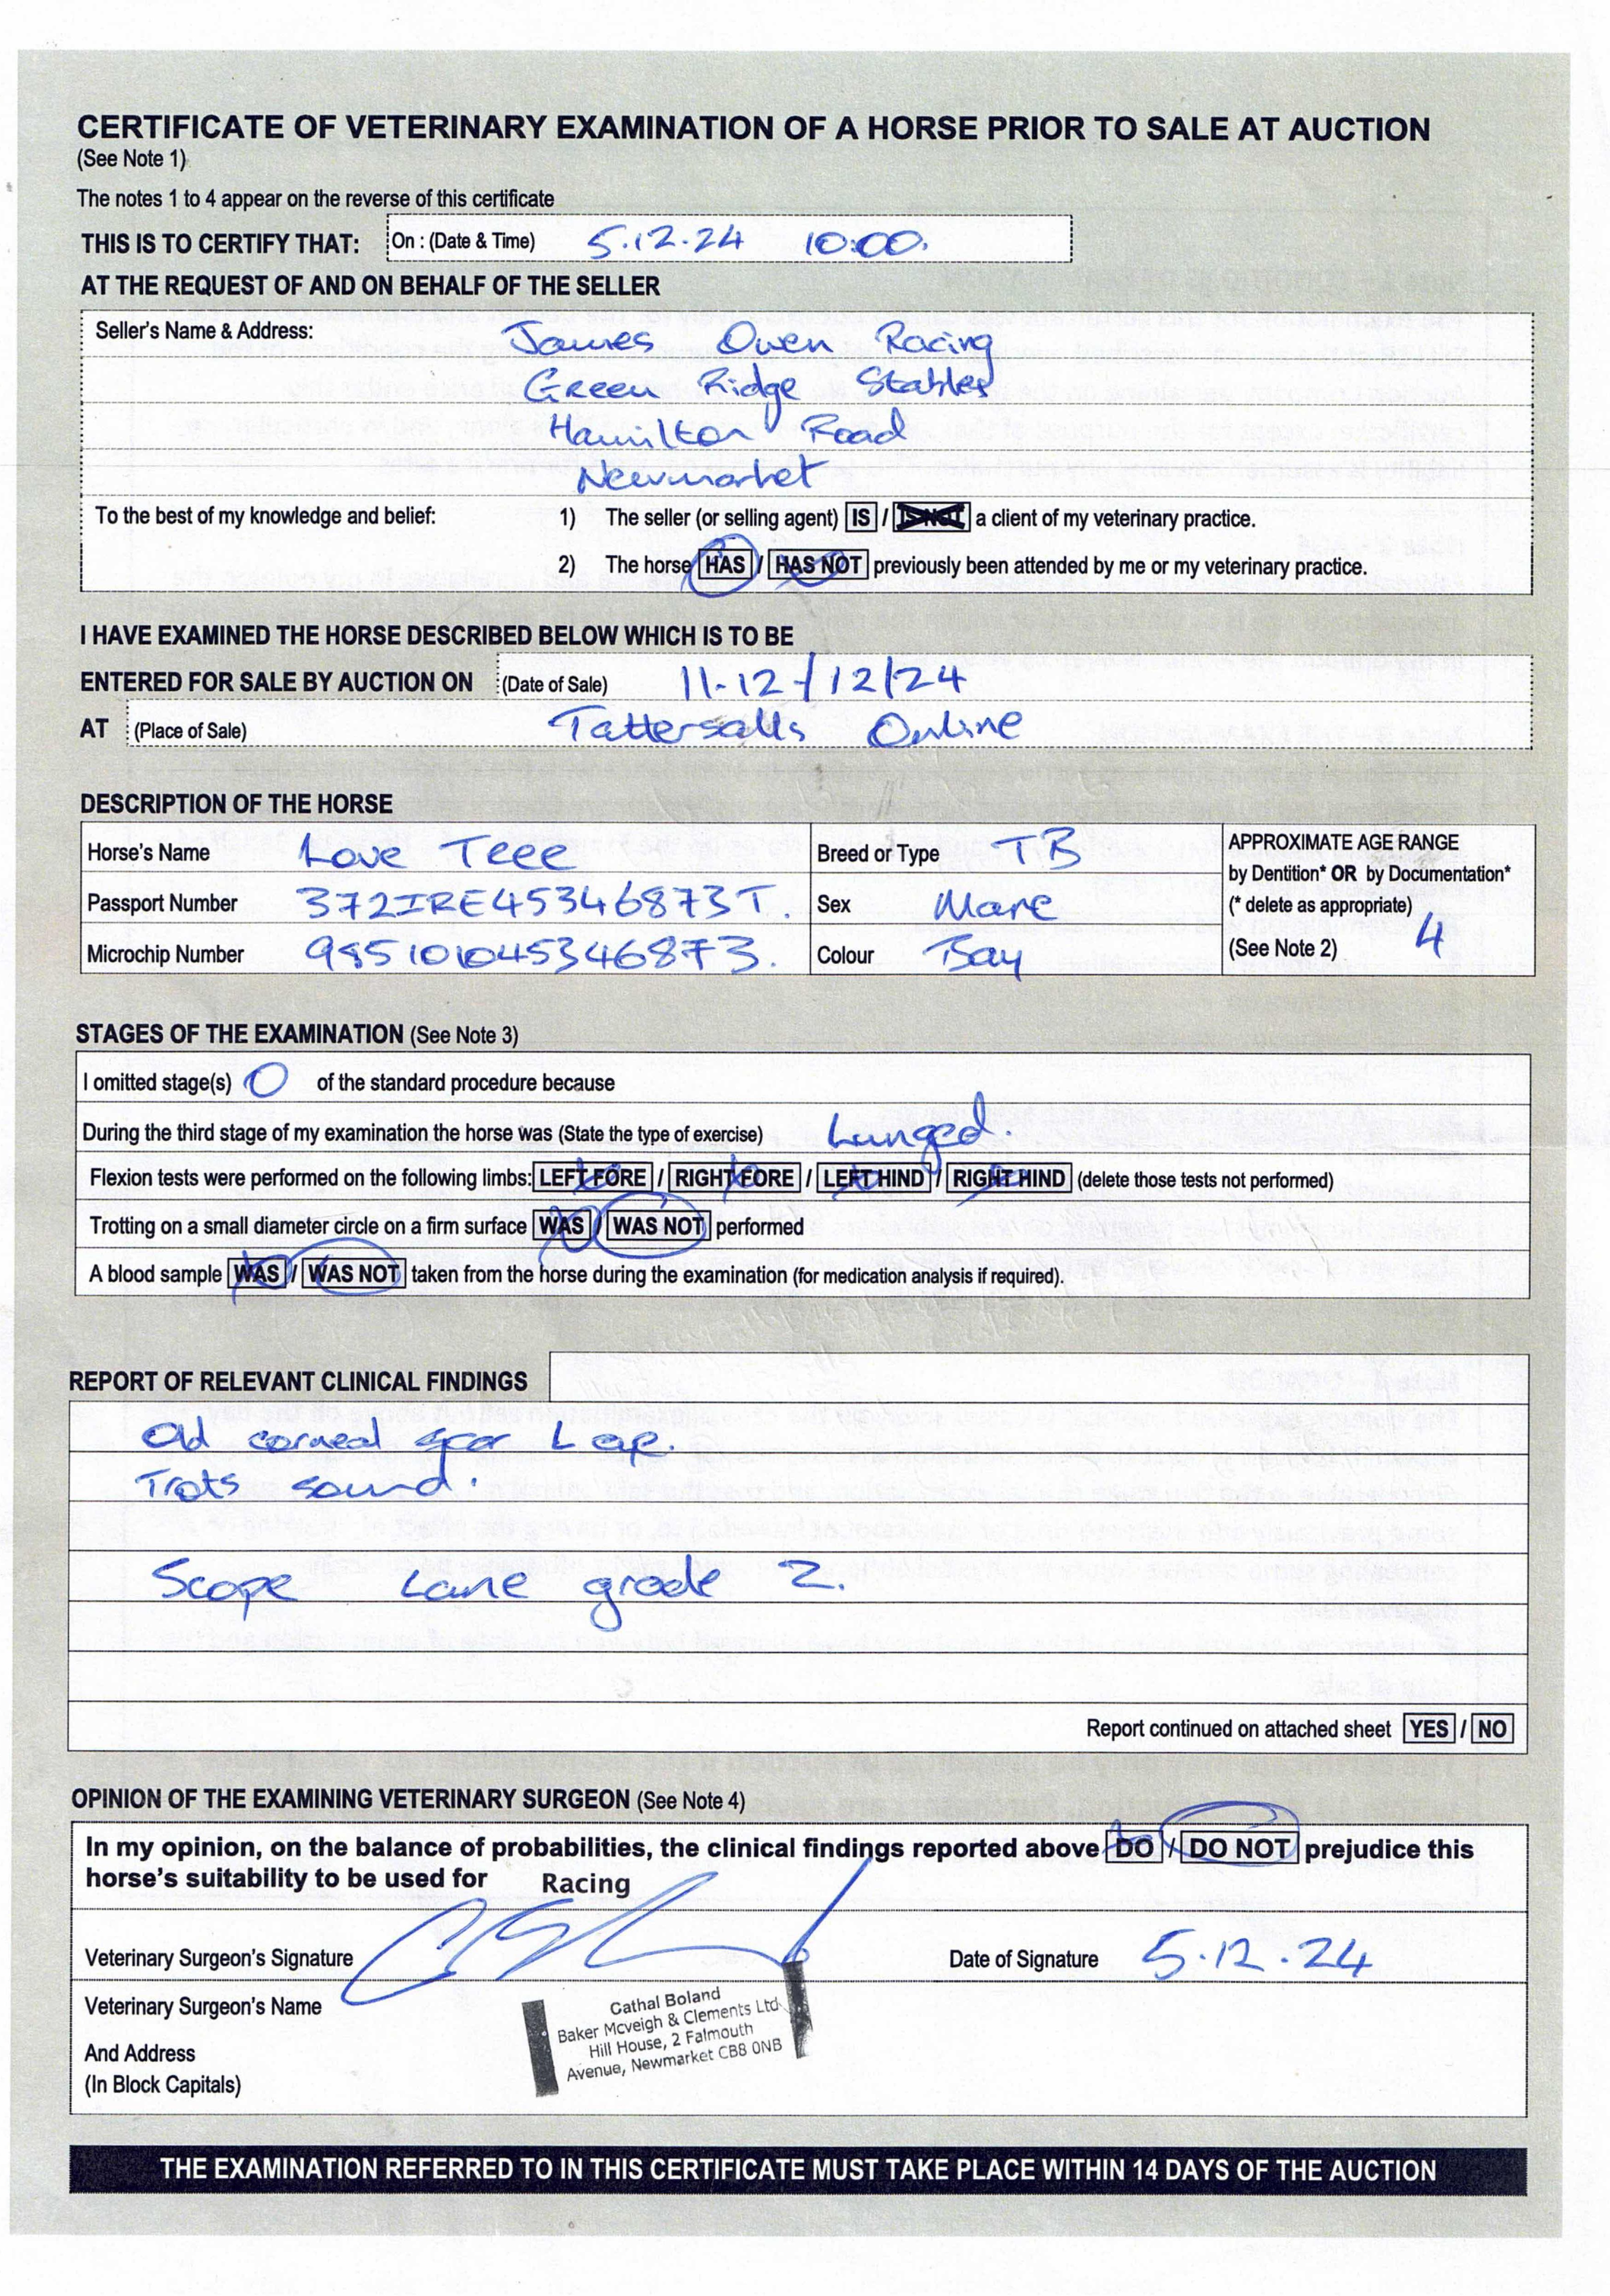 CERTIFICATE OF VETERINARY EXAMINATION OF A HORSE PRIOR TO SALE AT AUCTION
(See Note 1)
The notes 1 to 4 appear on the reverse of this certificate
THIS IS TO CERTIFY THAT: On : (Date & Time) 5.12.24 10:00.
AT THE REQUEST OF AND ON BEHALF OF THE SELLER
Seller's Name & Address: James Owen Racing
Green Ridge Stables
Hamilton Road
Newmarket
To the best of my knowledge and belief: 1) The seller (or selling agent) IS / IS NOT a client of my veterinary practice.
2) The horse HAS / HAS NOT previously been attended by me or my veterinary practice.
I HAVE EXAMINED THE HORSE DESCRIBED BELOW WHICH IS TO BE
ENTERED FOR SALE BY AUCTION ON (Date of Sale) 11-12/12/24
AT (Place of Sale) Tattersalls Online
DESCRIPTION OF THE HORSE
Horse's Name Love Teee Breed or Type TB APPROXIMATE AGE RANGE
by Dentition* OR by Documentation*
Passport Number 372IRE45346873T. Sex Mare (* delete as appropriate)
Microchip Number 985101045346873. Colour Bay (See Note 2) 4
STAGES OF THE EXAMINATION (See Note 3)
I omitted stage(s) 0 of the standard procedure because
During the third stage of my examination the horse was (State the type of exercise) Lunged.
Flexion tests were performed on the following limbs: LEFT FORE / RIGHT FORE / LEFT HIND / RIGHT HIND (delete those tests not performed)
Trotting on a small diameter circle on a firm surface WAS / WAS NOT performed
A blood sample WAS / WAS NOT taken from the horse during the examination (for medication analysis if required).
REPORT OF RELEVANT CLINICAL FINDINGS
Old corneal scar L
Trots sound.
Scope Lane grade 2.
Report continued on attached sheet YES / NO
OPINION OF THE EXAMINING VETERINARY SURGEON (See Note 4)
In my opinion, on the balance of probabilities, the clinical findings reported above DO / DO NOT prejudice this
horse's suitability to be used for Racing
Veterinary Surgeon's Signature Date of Signature 5.12.24
Veterinary Surgeon's Name
And Address
(In Block Capitals)
Cathal Boland
Baker Mcveigh & Clements Ltd
Hill House, 2 Falmouth
Avenue, Newmarket CB8 0NB
THE EXAMINATION REFERRED TO IN THIS CERTIFICATE MUST TAKE PLACE WITHIN 14 DAYS OF THE AUCTION